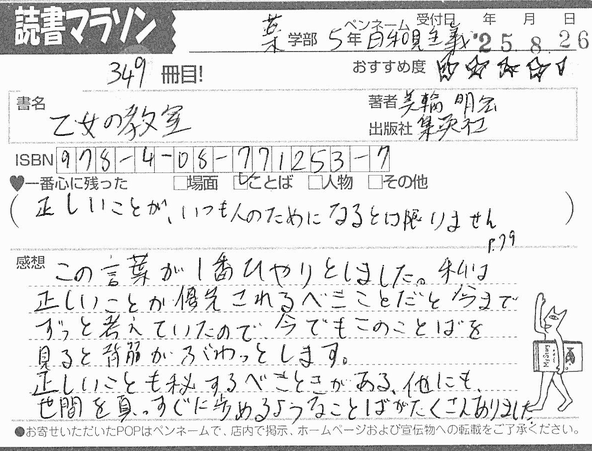 読書マラソン
ペンネーム 受付日 年 月 日
薬学部 5年 自和覌主義 '25.8.26
349冊目!
おすすめ度 ☆☆☆☆☆
書名
乙女の教室
著者 美輪明宏
出版社 集英社
ISBN 978-4-08-771253-7
♥一番心に残った □場面 ☑ことば □人物 □その他
(正しいことが、いつも人のためになるとは限りません)
P.79
感想 この言葉が1番ひやりとしました。私は
正しいことが優先されるべきことだと今まで
ずっと考えていたので、今でもこのことばを
見ると背筋がぶわっとします。
正しいことも秘するべきときがある、他にも、
世間を真っすぐに歩めるようなことばがたくさんありました
●お寄せいただいたPOPはペンネームで、店内で掲示、ホームページおよび宣伝物への転載をご了承ください。